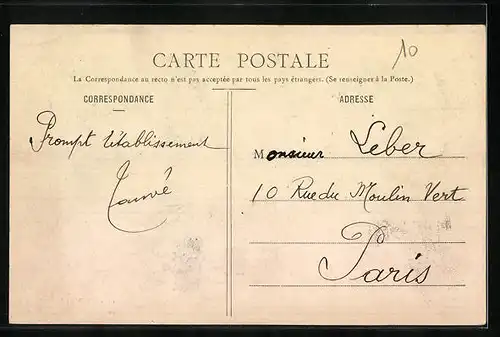 10
CARTE POSTALE
La Correspondance au recto n'est pas acceptée par tous les pays étrangers. (Se renseigner à la Poste.)
CORRESPONDANCE
ADRESSE
Prompt rétablissement
Monsieur Leber
10 Rue du Moulin Vert
Paris